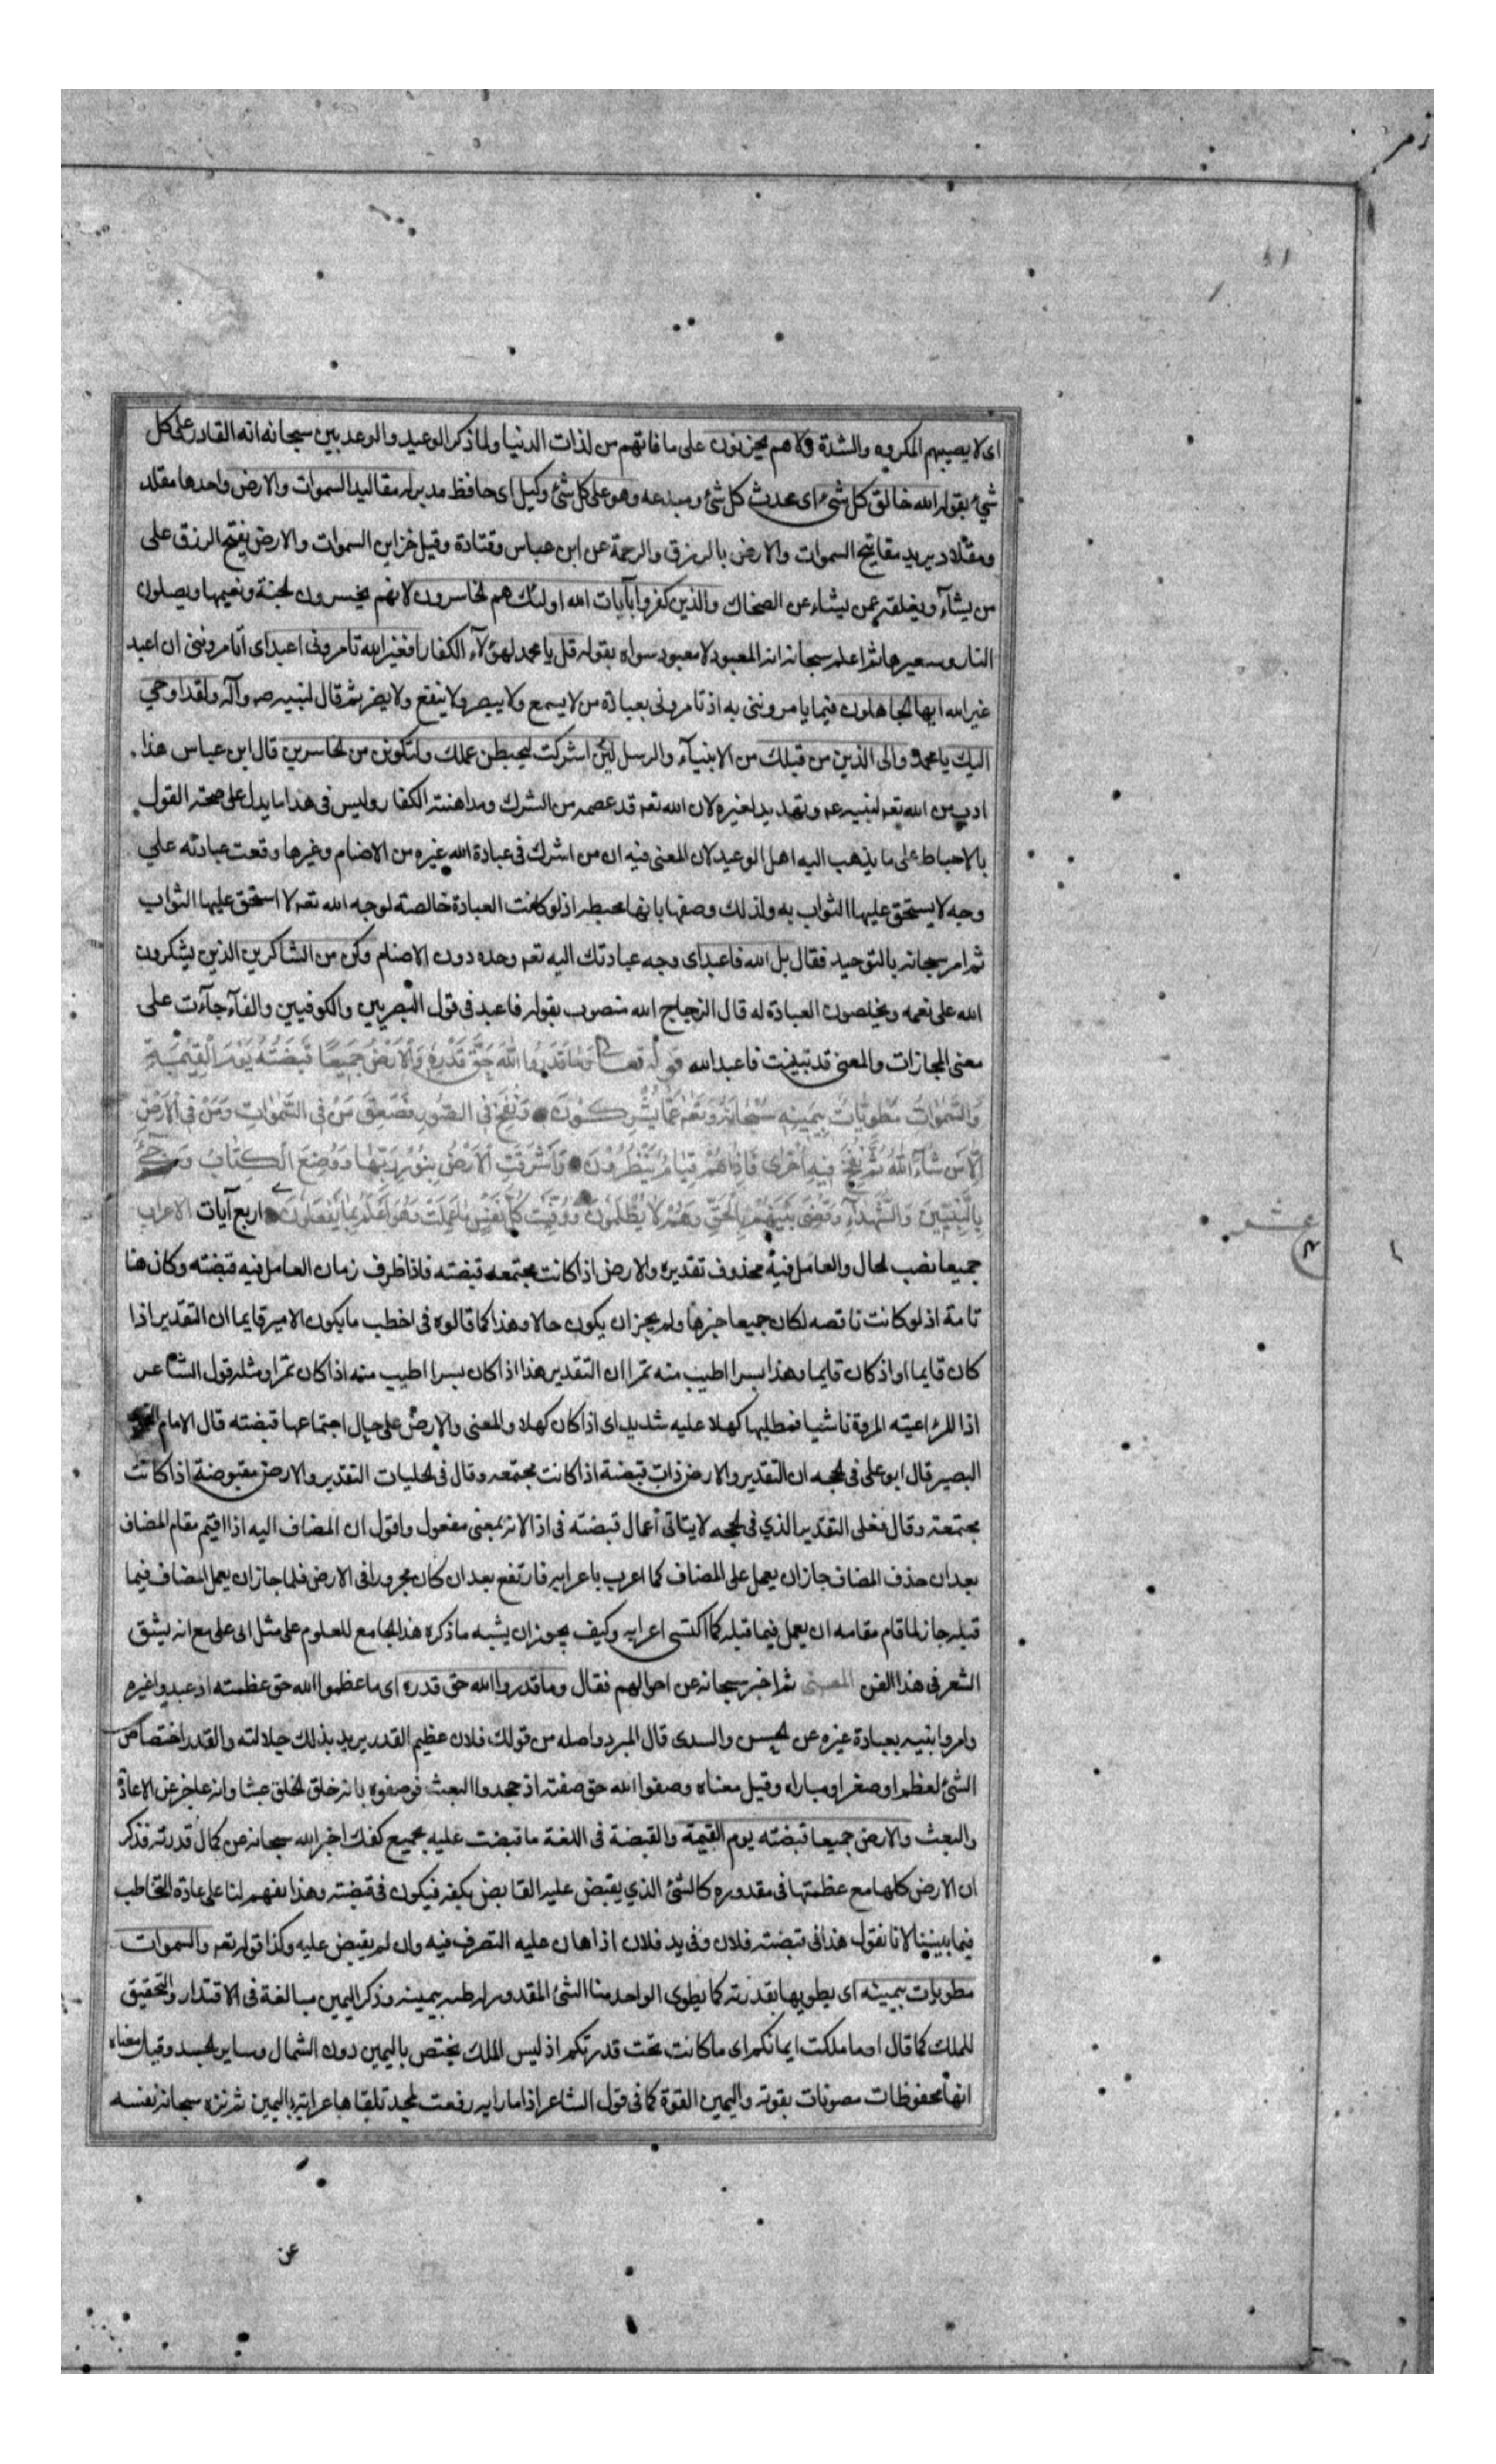 زمر
اى لا يصيبهم المكروه والشدة ولا هم يحزنون على ما فاتهم من لذات الدنيا ولما ذكر الوعيد والوعد بين سبحانه انه القادر على كل
شئ بقوله الله خالق كل شئ اى محدث كل شئ ومبدعه وهو على كل شئ وكيل اى حافظ مدبر له مقاليد السموات والارض واحدها مقلد
ومقلاد يريد مفاتيح السموات والارض بالرزق والرحمة عن ابن عباس وقتادة وقيل خزاين السموات والارض يفتح الرزق على
من يشآء ويغلقه عمن يشاء عن الضحاك والذين كفروا بآيات الله اولئك هم الخاسرون لانهم يخسرون الجنة ونعيمها ويصلون
النار وسعيرها ثم اعلم سبحانه انه المعبود لا معبود سواه بقوله قل يا محمد لهؤلآء الكفار افغير الله تامرونى اعبد اى اتامروننى ان اعبد
غير الله ايها الجاهلون فيما يامروننى به اذ تامرونى بعبادة من لا يسمع ولا يبصر ولا ينفع ولا يضر ثم قال لنبيه ص وآله ولقد اوحي
اليك يا محمد والى الذين من قبلك من الانبيآء والرسل لئن اشركت ليحبطن عملك ولتكونن من الخاسرين قال ابن عباس هذا
ادب من الله تعه لنبيه عم وتهديد لغيره لان الله تعه قد عصمه من الشرك ومداهنة الكفار وليس فى هذا ما يدل على صحة القول
بالاحباط على ما يذهب اليه اهل الوعيد لان المعنى فيه ان من اشرك فى عبادة الله غيره من الاصنام وغيرها وقعت عبادته علي
وجه لا يستحق عليها الثواب به ولذلك وصفها بانها محبطه اذ لو كانت العبادة خالصة لوجه الله تعه لا استحق عليها الثواب
ثم امر سبحانه بالتوحيد فقال بل الله فاعبد اى وجه عبادتك اليه تعه وحده دون الاصنام وكن من الشاكرين الذين يشكرون
الله على نعمه ويخلصون العبادة له قال الزجاج الله منصوب بقوله فاعبد فى قول البصريين والكوفيين والفآء جآءت على
معنى المجازات والمعنى قد تبينت فاعبد الله قوله تعالى وَمَا قَدَرُوا اللَّهَ حَقَّ قَدْرِهِ وَالْاَرْضُ جَمِيعًا قَبْضَتُهُ يَوْمَ الْقِيٰمَةِ
وَالسَّمٰوَاتُ مَطْوِيَّاتٌ بِيَمِينِهِ سُبْحَانَهُ وَتَعٰ عَمَّا يُشْرِكُونَ وَنُفِخَ فِى الصُّورِ فَصَعِقَ مَنْ فِى السَّمٰوَاتِ وَمَنْ فِى الْاَرْضِ
اِلَّا مَنْ شَآءَ اللَّهُ ثُمَّ نُفِخَ فِيهِ اُخْرٰى فَاِذَا هُمْ قِيَامٌ يَنْظُرُونَ وَاَشْرَقَتِ الْاَرْضُ بِنُورِ رَبِّهَا وَوُضِعَ الْكِتَابُ وَجِئَ
بِالنَّبِيِّينَ وَالشُّهَدَآءِ وَقُضِىَ بَيْنَهُمْ بِالْحَقِّ وَهُمْ لَا يُظْلَمُونَ وَوُفِّيَتْ كُلُّ نَفْسٍ مَا عَمِلَتْ وَهُوَ اَعْلَمُ بِمَا يَفْعَلُونَ اربع آيات الاعراب
عشر
جميعا نصب الحال والعامل فيه محذوف تقديره والارض اذا كانت مجتمعه قبضته فاذا ظرف زمان العامل فيه قبضته وكان هنا
تامة اذ لو كانت ناقصه لكان جميعا خبرها ولم يجز ان يكون حالا وهذا كما قالوه فى اخطب ما يكون الامير قايما ان التقدير اذا
كان قايما او اذ كان قايما وهذا بسرا اطيب منه تمرا ان التقدير هذا اذا كان بسرا اطيب منه اذا كان تمرا ومثله قول الشاعر
اذا المرء اعيته المروة ناشيا فمطلبها كهلا عليه شديد اى اذا كان كهلا والمعنى والارض على حال اجتماعها قبضته قال الامام
البصير قال ابو على فى الحجه ان التقدير والارض ذات قبضة اذا كانت مجتمعه وقال فى الحلبيات التقدير والارض مقبوضة اذا كانت
مجتمعة وقال فعلى التقدير الذي فى الحجه لا يتاتى أعمال قبضته فى اذا لانه بمعنى مفعول واقول ان المضاف اليه اذا اقيم مقام المضاف
بعد ان حذف المضاف جاز ان يعمل على المضاف كما اعرب باعرابه فارتفع بعد ان كان مجرورا فى الارض فلما جاز ان يعمل المضاف فيما
قبله جاز لما قام مقامه ان يعمل فيما قبله كما اكتسى اعرابه وكيف يجوز ان يشبه ما ذكره هذا الجامع للعلوم على مثل ابى على مع انه يشق
الشعر فى هذا الفن المعنى ثم اخبر سبحانه عن احوالهم فقال وما قدروا الله حق قدره اى ما عظموا الله حق عظمته اذ عبدوا غيره
وامروا نبيه بعبادة غيره عن الحسن والسدى قال المبرد واصله من قولك فلان عظيم القدر يريد بذلك جلالته والقدر اختصاص
الشئ لعظم او صغر او مساواه وقيل معناه وصفوا الله حق صفته اذ جحدوا البعث فوصفوه بانه خلق الخلق عبثا وانه عاجز عن الاعادة
والبعث والارض جميعا قبضته يوم القيمة والقبضة فى اللغة ما قبضت عليه بجميع كفك اخبر الله سبحانه عن كمال قدرته فذكر
ان الارض كلها مع عظمتها فى مقدوره كالشئ الذي يقبض عليه القابض بكفه فيكون فى قبضته وهذا تفهيم لنا على عادة التخاطب
فيما بيننا لانا نقول هذا فى قبضة فلان وفى يد فلان اذا هان عليه التصرف فيه وان لم يقبض عليه وكذا قوله تعه والسموات
مطويات بيمينه اى يطويها بقدرته كما يطوى الواحد منا الشئ المقدور له طيه بيمينه وذكر اليمين مبالغة فى الاقتدار والتحقيق
للملك كما قال او ما ملكت ايمانكم اى ما كانت تحت قدرتكم اذ ليس الملك يختص باليمين دون الشمال وساير الجسد وقيل معناه
انها محفوظات مصونات بقوته واليمين القوة كما فى قول الشاعر اذا ما رايه رفعت لمجد تلقاها عرابة باليمين ثم نزه سبحانه نفسه
عن